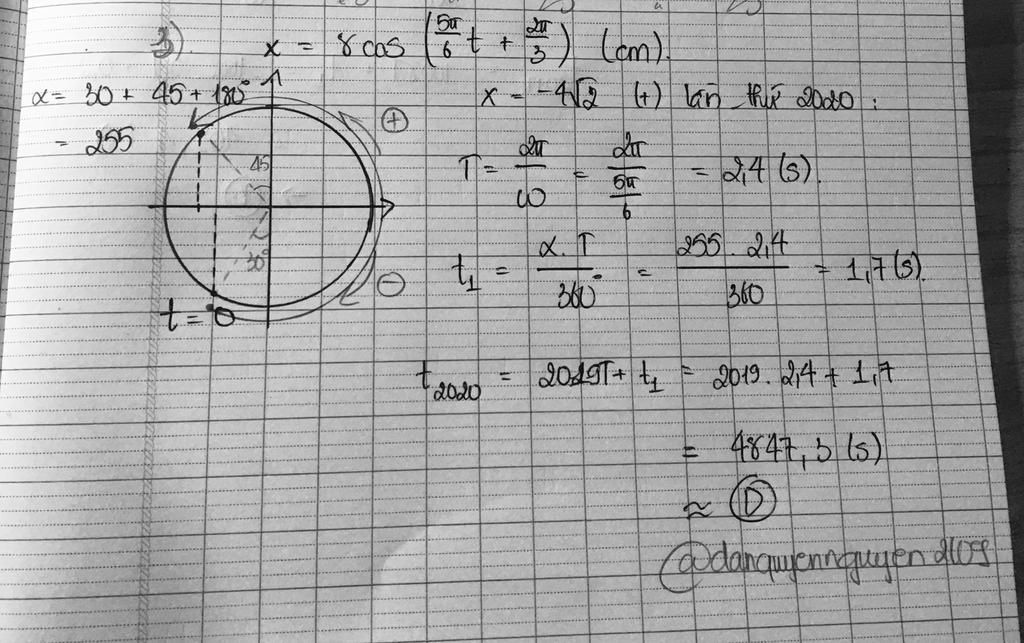 3). x = 8cos (5π/6 t + 2π/3) (cm).
α = 30 + 45 + 180°
= 255
x = -4√2 (+) lần thứ 2020 :
T = 2π/ω = 2π/(5π/6) = 2,4 (s).
t₁ = α.T/360° = 255 . 2,4/360 = 1,7 (s).
t₂₀₂₀ = 2019T + t₁ = 2019 . 2,4 + 1,7
= 4847,3 (s)
≈ D
+
45
30°
−
t = 0
@danquyennguyen2109